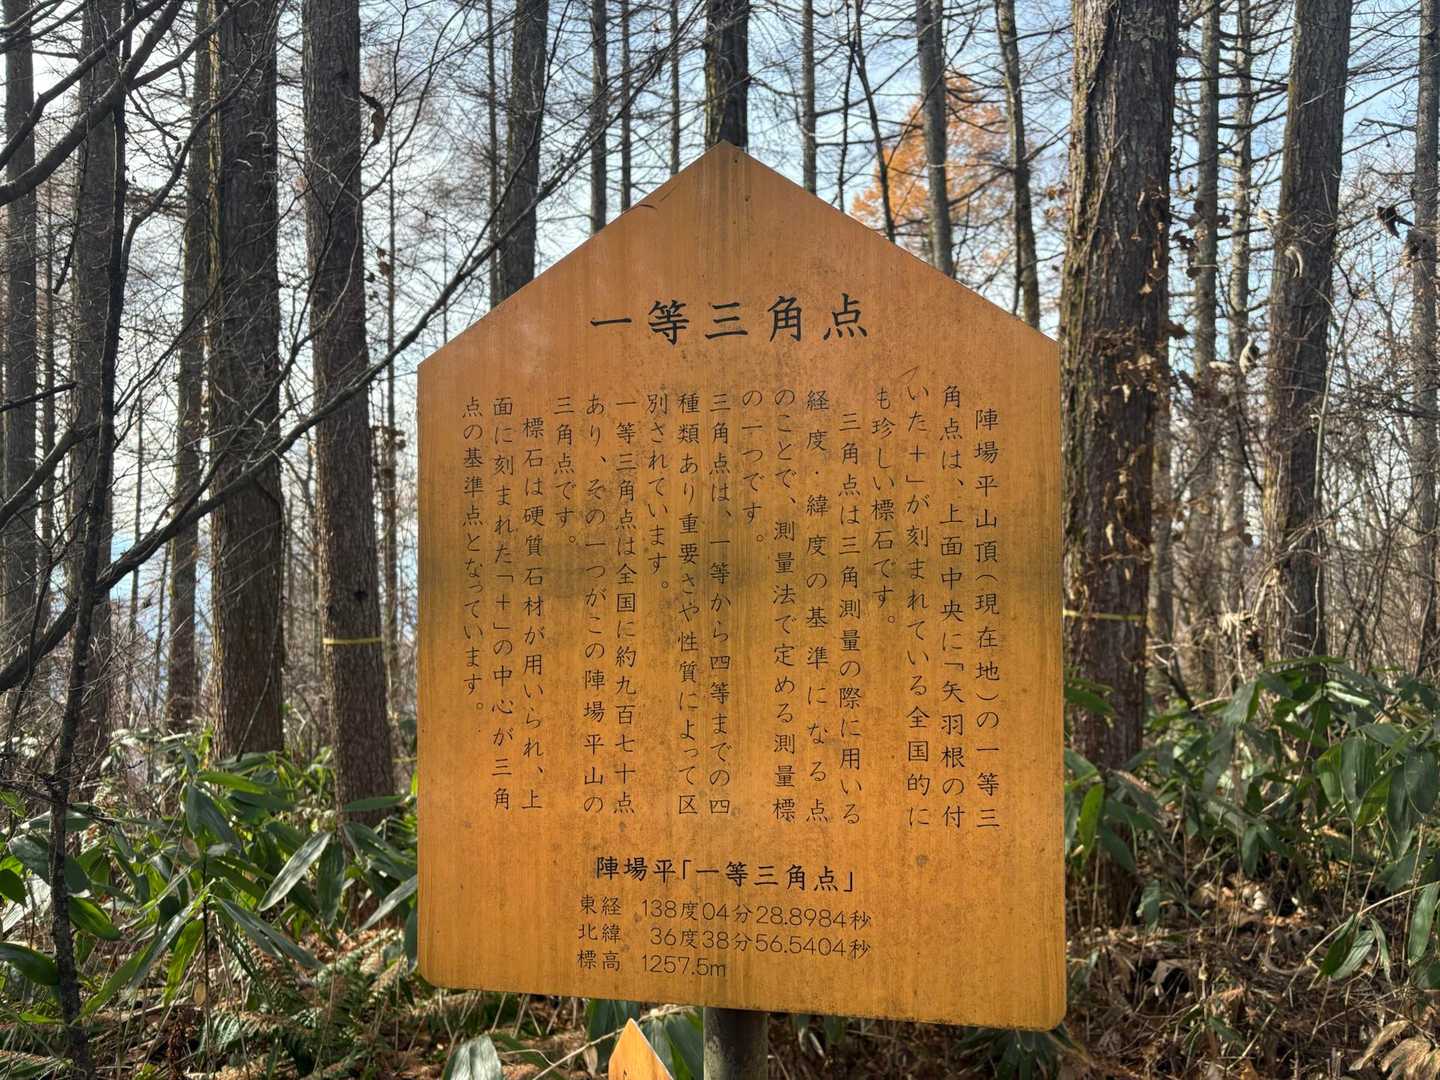 一等三角点
陣場平山頂(現在地)の一等三
角点は、上面中央に「矢羽根の付
いた＋」が刻まれている全国的に
も珍しい標石です。
三角点は三角測量の際に用いる
経度・緯度の基準になる点
のことで、測量法で定める測量標
の一つです。
三角点は、一等から四等までの四
種類あり重要さや性質によって区
別されています。
一等三角点は全国に約九百七十点
あり、その一つがこの陣場平山の
三角点です。
標石は硬質石材が用いられ、上
面に刻まれた「＋」の中心が三角
点の基準点となっています。
陣場平「一等三角点」
東経 138度04分28.8984秒
北緯 36度38分56.5404秒
標高 1257.5m